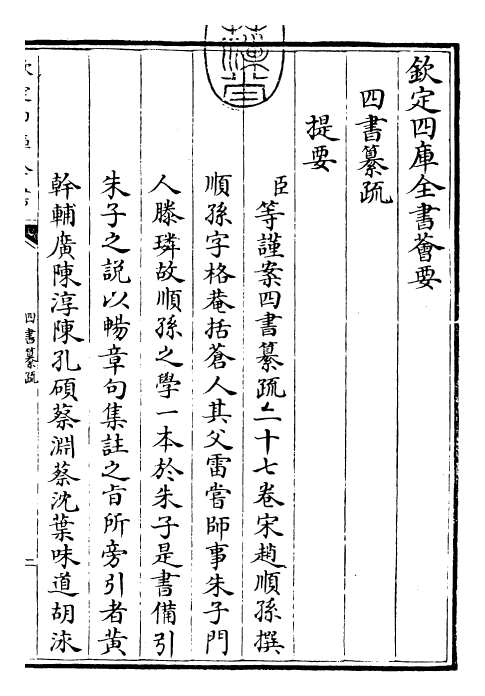 欽定四庫全書薈要
四書纂疏
提要
臣等謹案四書纂疏二十七卷宋趙順孫撰
順孫字格菴括蒼人其父雷嘗師事朱子門
人滕璘故順孫之學一本於朱子是書備引
朱子之説以暢章句集註之旨所旁引者黄
幹輔廣陳淳陳孔碩蔡淵蔡沈葉味道胡泳
四書纂疏